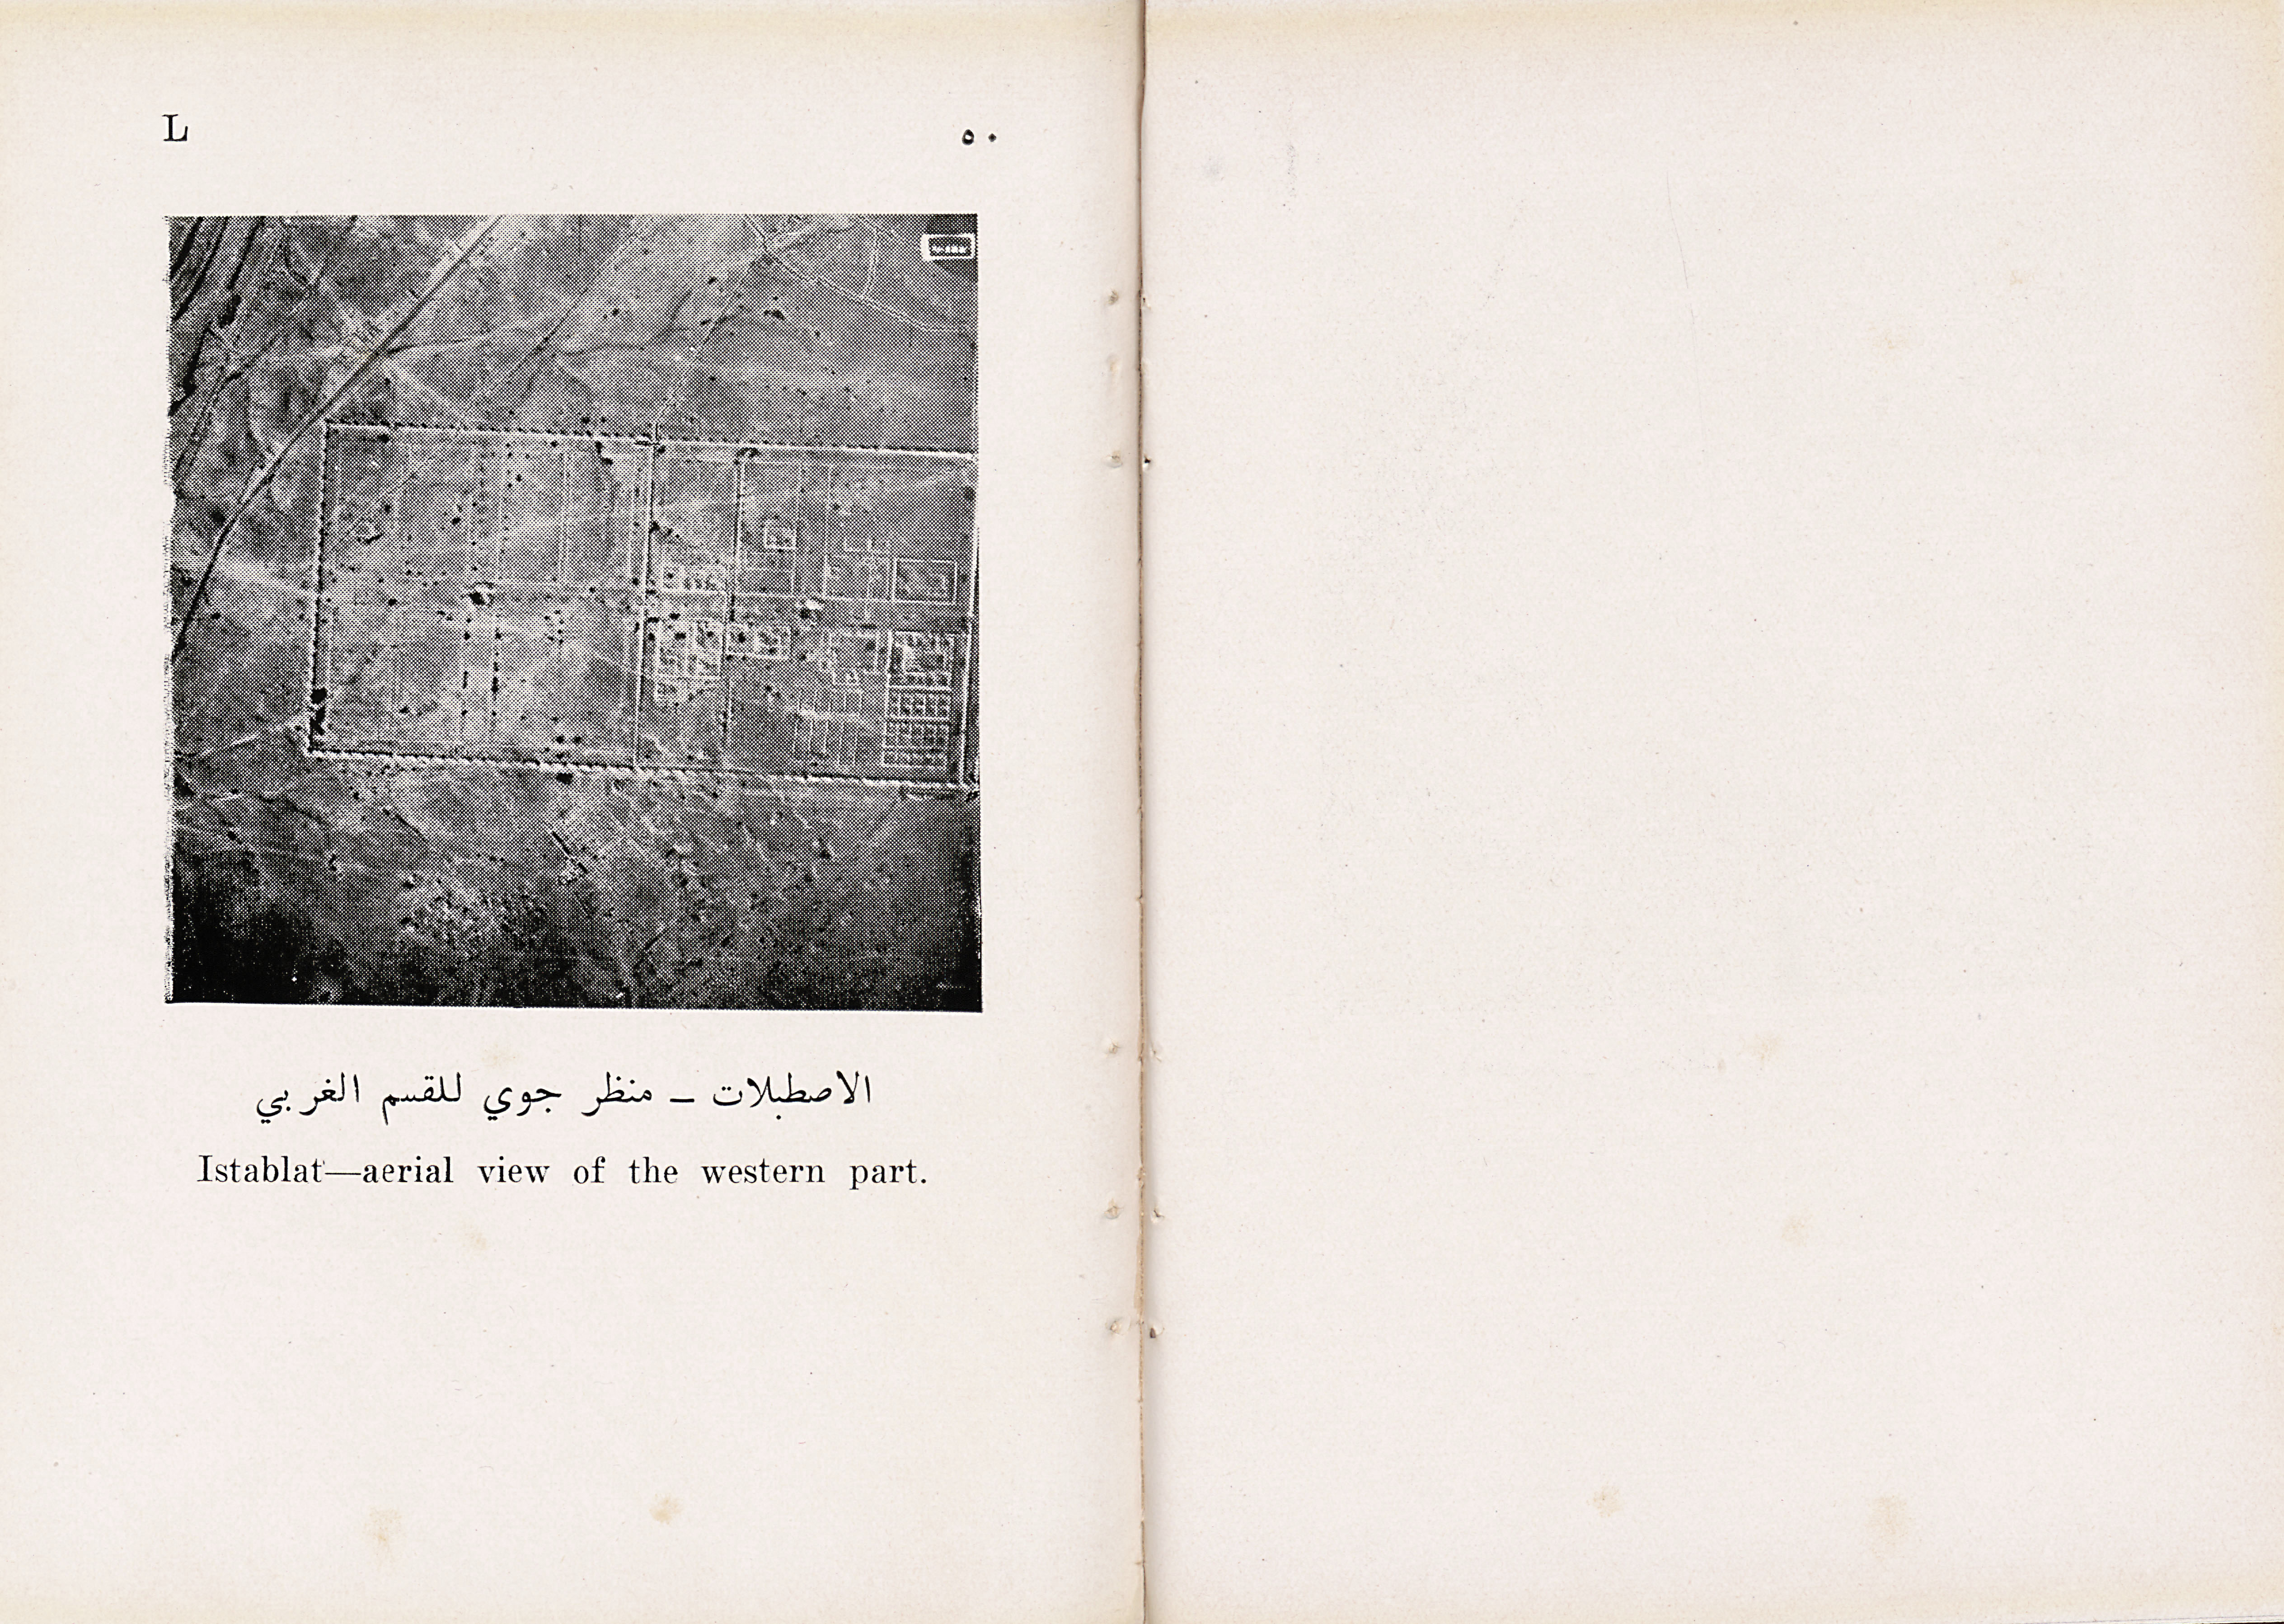 L ٥٠
الاصطبلات – منظر جوي للقسم الغربي
Istablat—aerial view of the western part.